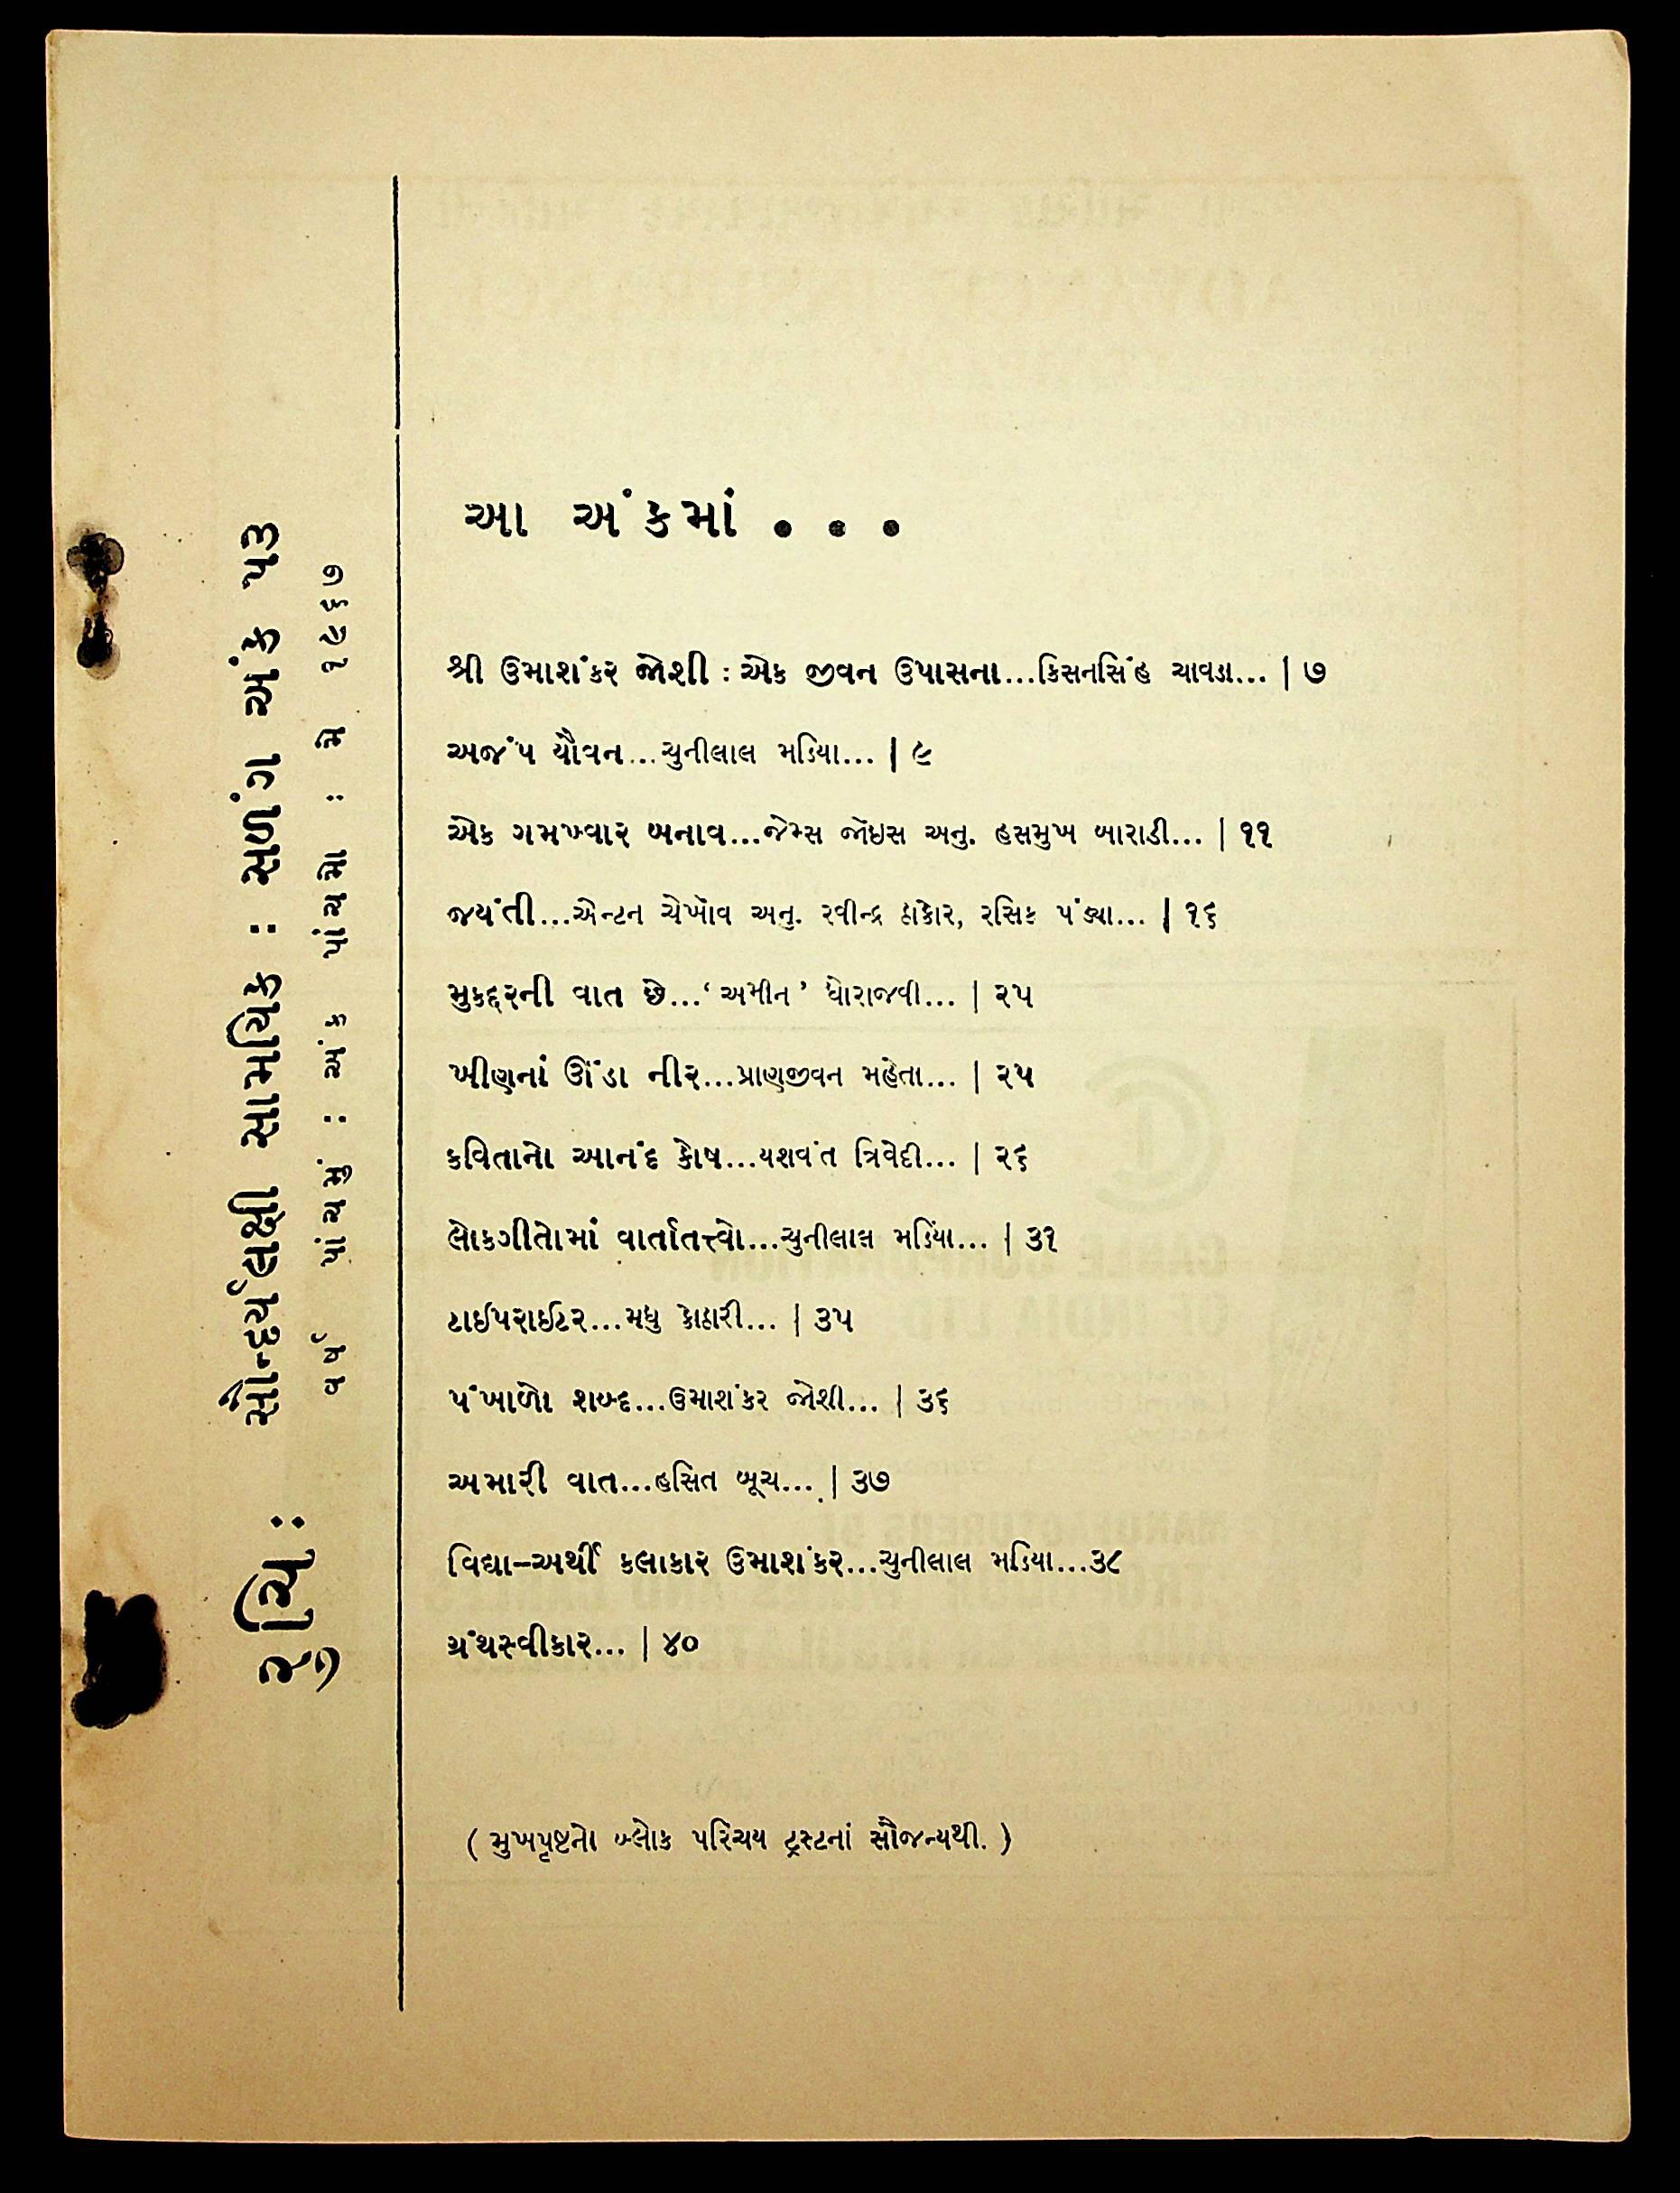 રુચિ : સૌન્દર્યલક્ષી સામયિક : સળંગ અંક ૫૩
વર્ષ પાંચમું : અંક પાંચમો : મે ૧૯૬૭
આ અંકમાં . . .
શ્રી ઉમાશંકર જોશી : એક જીવન ઉપાસના...કિસનસિંહ ચાવડા... | ૭
અજંપ યૌવન...ચુનીલાલ મડિયા... | ૯
એક ગમખ્વાર બનાવ...જેમ્સ જોઇસ અનુ. હસમુખ બારાડી... | ૧૧
જયંતી...એન્ટન ચેખોવ અનુ. રવીન્દ્ર ઠાકોર, રસિક પંડ્યા... | ૧૬
મુકદ્દરની વાત છે...‘અમીન’ ધોરાજવી... | ૨૫
ખીણનાં ઊંડા નીર...પ્રાણજીવન મહેતા... | ૨૫
કવિતાનો આનંદ કોષ...યશવંત ત્રિવેદી... | ૨૬
લોકગીતોમાં વાર્તાતત્ત્વો...ચુનીલાલ મડિયા... | ૩૧
ટાઈપરાઈટર...મધુ કોઠારી... | ૩૫
પંખાળો શબ્દ...ઉમાશંકર જોશી... | ૩૬
અમારી વાત...હસિત બૂચ... | ૩૭
વિદ્યા–અર્થી કલાકાર ઉમાશંકર...ચુનીલાલ મડિયા...૩૮
ગ્રંથસ્વીકાર... | ૪૦
( મુખપૃષ્ટનો બ્લોક પરિચય ટ્રસ્ટનાં સૌજન્યથી. )